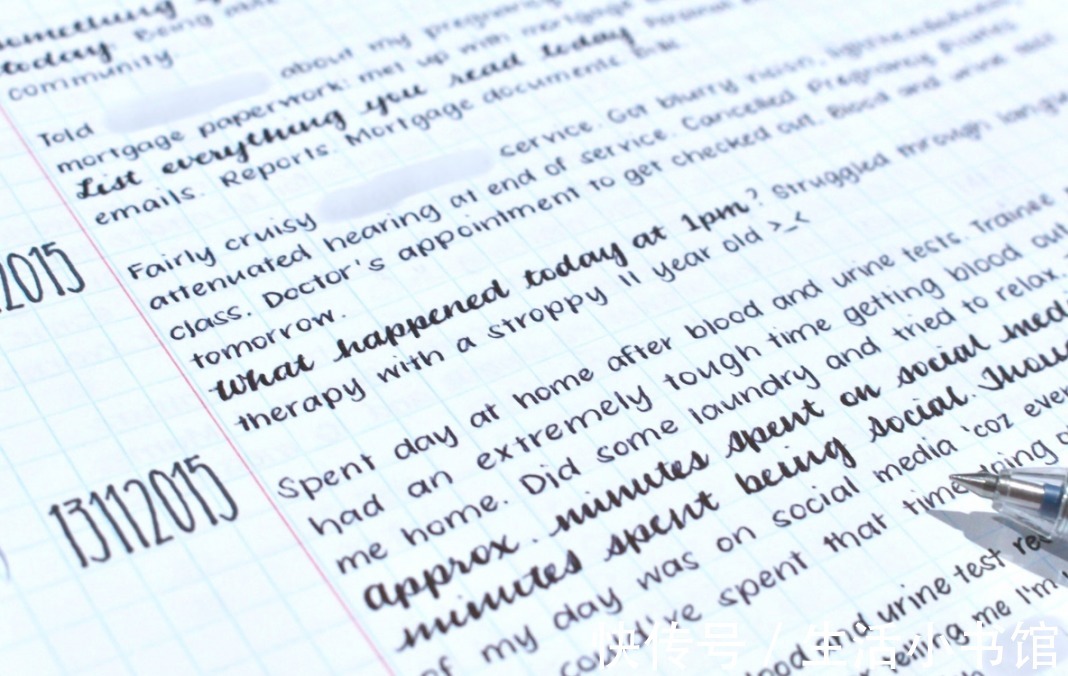 something
today. Being
community
Told about my pregnancy
mortgage paperwork: met up with mortgage
List everything you read today
emails. Reports. Mortgage documents
Fairly cruisy service. Got blurry vision, lightheadedness,
attenuated hearing at end of service. Cancelled Pregnancy Pilates
class. Doctor's appointment to get checked out. Blood and urine test
tomorrow.
What happened today at 1pm? Struggled through
therapy with a stroppy 11 year old >_<
2015
13112015
Spent day at home after blood and urine tests. Trainee
had an extremely tough time getting blood out
me home. Did some laundry and tried to relax.
approx. minutes spent on social
minutes spent being social.
of my day was on social media 'coz
spent that time doing
blood and urine test
me I'm
快传号 / 生活小书馆